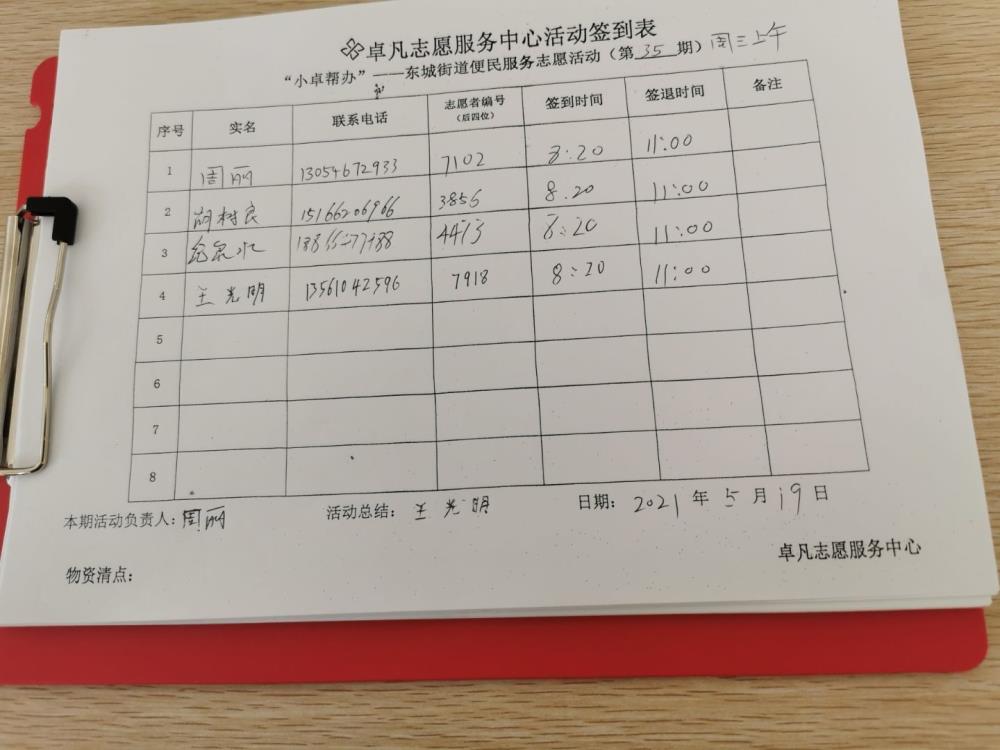 卓凡志愿服务中心活动签到表
“小卓帮办”——东城街道便民服务志愿活动（第35期）周三上午
序号 实名 联系电话 志愿者编号（后四位） 签到时间 签退时间 备注
1 周丽 13054672933 7102 8:20 11:00
2 胡树良 15166206966 3856 8.20 11:00
3 8:20 11:00
4 王光明 13561042596 7918 8:20 11:00
5
6
7
8
本期活动负责人：周丽 活动总结：王光明 日期：2021年5月19日
卓凡志愿服务中心
物资清点：